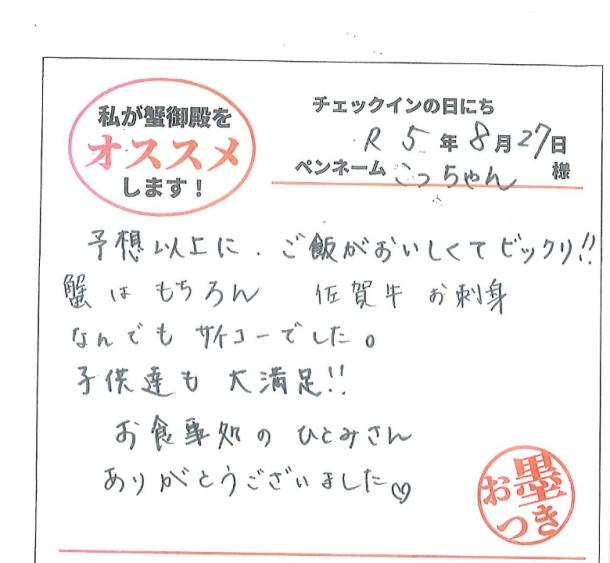 私が蟹御殿を
オススメ
します！
チェックインの日にち
R 5 年 8 月 27 日
ペンネーム こっちゃん 様
予想以上に、ご飯がおいしくてビックリ!!
蟹はもちろん 佐賀牛 お刺身
なんでも サイコーでした。
子供達も 大満足!!
お食事処の ひとみさん
ありがとうございました♡
お墨つき